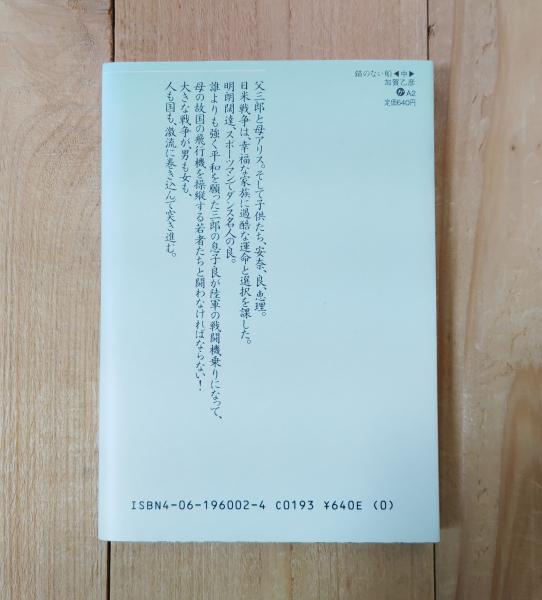 錨のない船◀中▶
加賀乙彦
か A2
定価640円
父三郎と母アリス。そして子供たち、安奈、良、恵理。
日米戦争は、幸福な家族に過酷な運命と選択を課した。
明朗闊達、スポーツマンでダンス名人の良。
誰よりも強く平和を願った三郎の息子良が陸軍の戦闘機乗りになって、
母の故国の飛行機を操縦する若者たちと闘わなければならない!
大きな戦争が、男も女も、
人も国も、激流に巻き込んで突き進む。
ISBN4-06-196002-4 C0193 ¥640E (0)